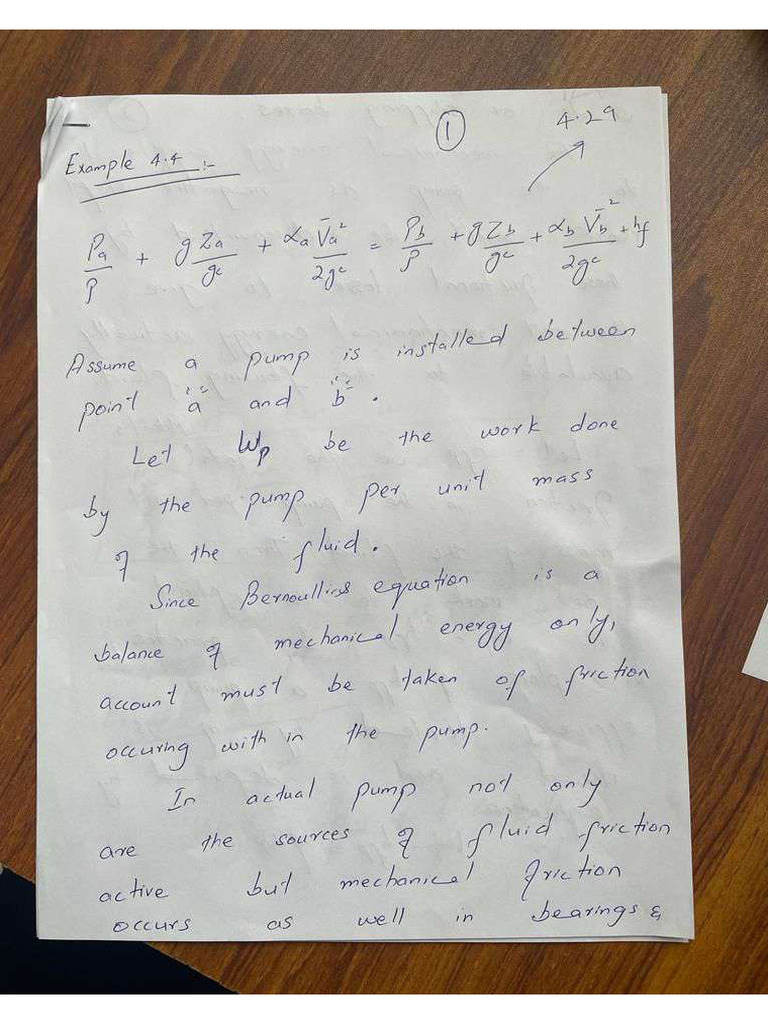 ① 4.29
Example 4.4 :-
Pa/ρ + gZa/gc + αa V̄a²/2gc = Pb/ρ + gZb/gc + αb V̄b²/2gc + hf
Assume a pump is installed between
point "a" and "b".
Let Wp be the work done
by the pump per unit mass
of the fluid.
Since Bernoullis equation is a
balance of mechanical energy only,
account must be taken of friction
occuring with in the pump.
In actual pump not only
are the sources of fluid friction
active but mechanical friction
occurs as well in bearings &